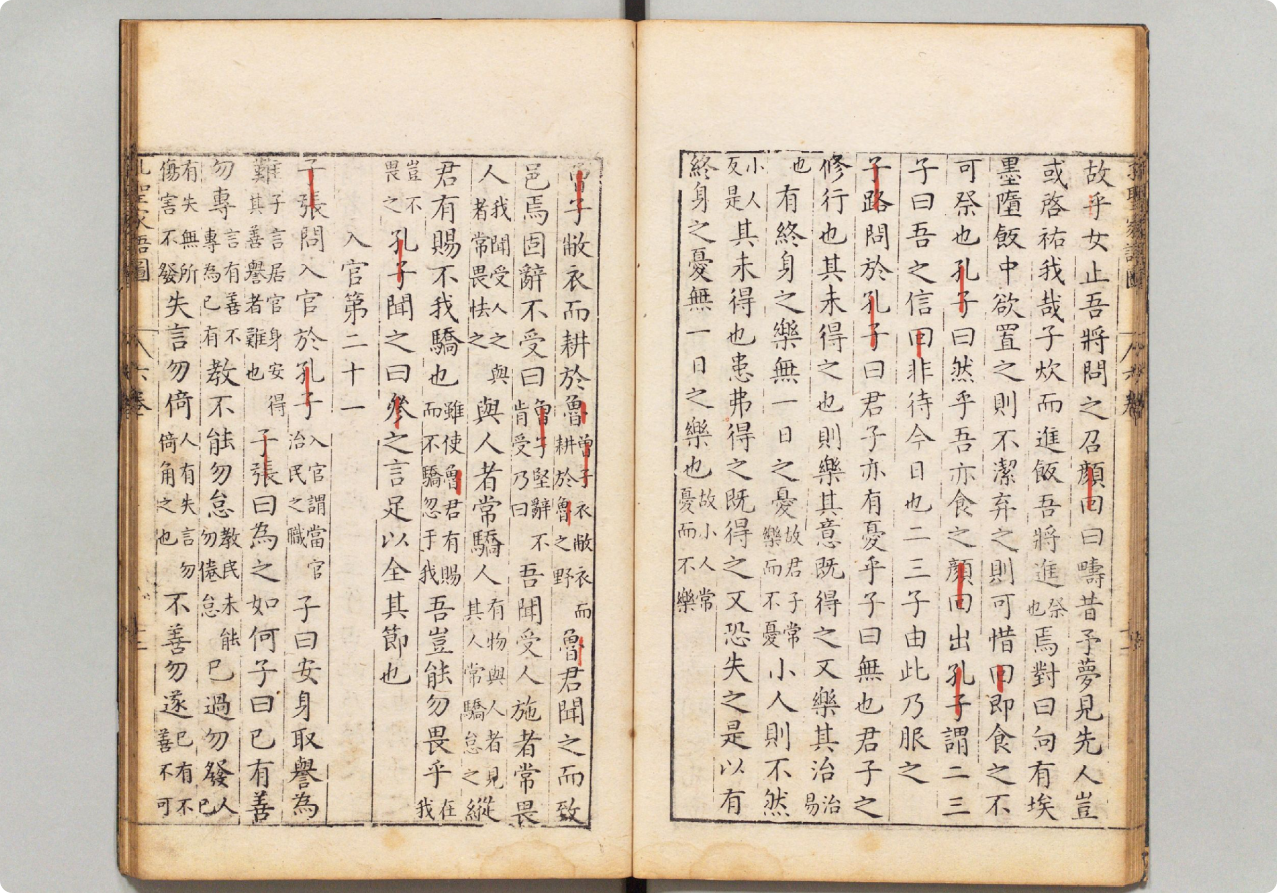 故乎女止吾將問之召顔囬曰疇昔予夢見先人豈
或啓祐我哉子炊而進飯吾將進祭也焉對曰向有埃
墨墮飯中欲置之則不潔弃之則可惜囬即食之不
可祭也孔子曰然乎吾亦食之顔囬出孔子謂二三
子曰吾之信囬非待今日也二三子由此乃服之
子路問於孔子曰君子亦有憂乎子曰無也君子之
修行也其未得之也則樂其意既得之又樂其治治易
也有終身之樂無一日之憂故君子常樂而不憂小人則不然
小人反是其未得也患弗得之既得之又恐失之是以有
終身之憂無一日之樂也故小人常憂而不樂
曾子敝衣而耕於魯曾子衣敝衣而耕於魯之野魯君聞之而致
邑焉固辭不受曰曾子堅辭不肯受乃曰吾聞受人施者常畏
人我聞受人之與者常畏怯之與人者常驕人有物與人者見其人常驕怠之縱
君有賜不我驕也雖使魯君有賜而不驕忽于我吾豈能勿畏乎在我
豈不畏之孔子聞之曰參之言足以全其節也
入官第二十一
子張問入官於孔子入官謂當官治民之職子曰安身取譽為
難子言居官身安得其善譽者難也子張曰為之如何子曰已有善
勿專言有善不專為已有教不能勿怠教民未能勿倦怠已過勿發人已
有失無所傷害不發失言勿倚人有失言勿倚角之也不善勿遂已有不善不可
孔聖家語圖 八六卷